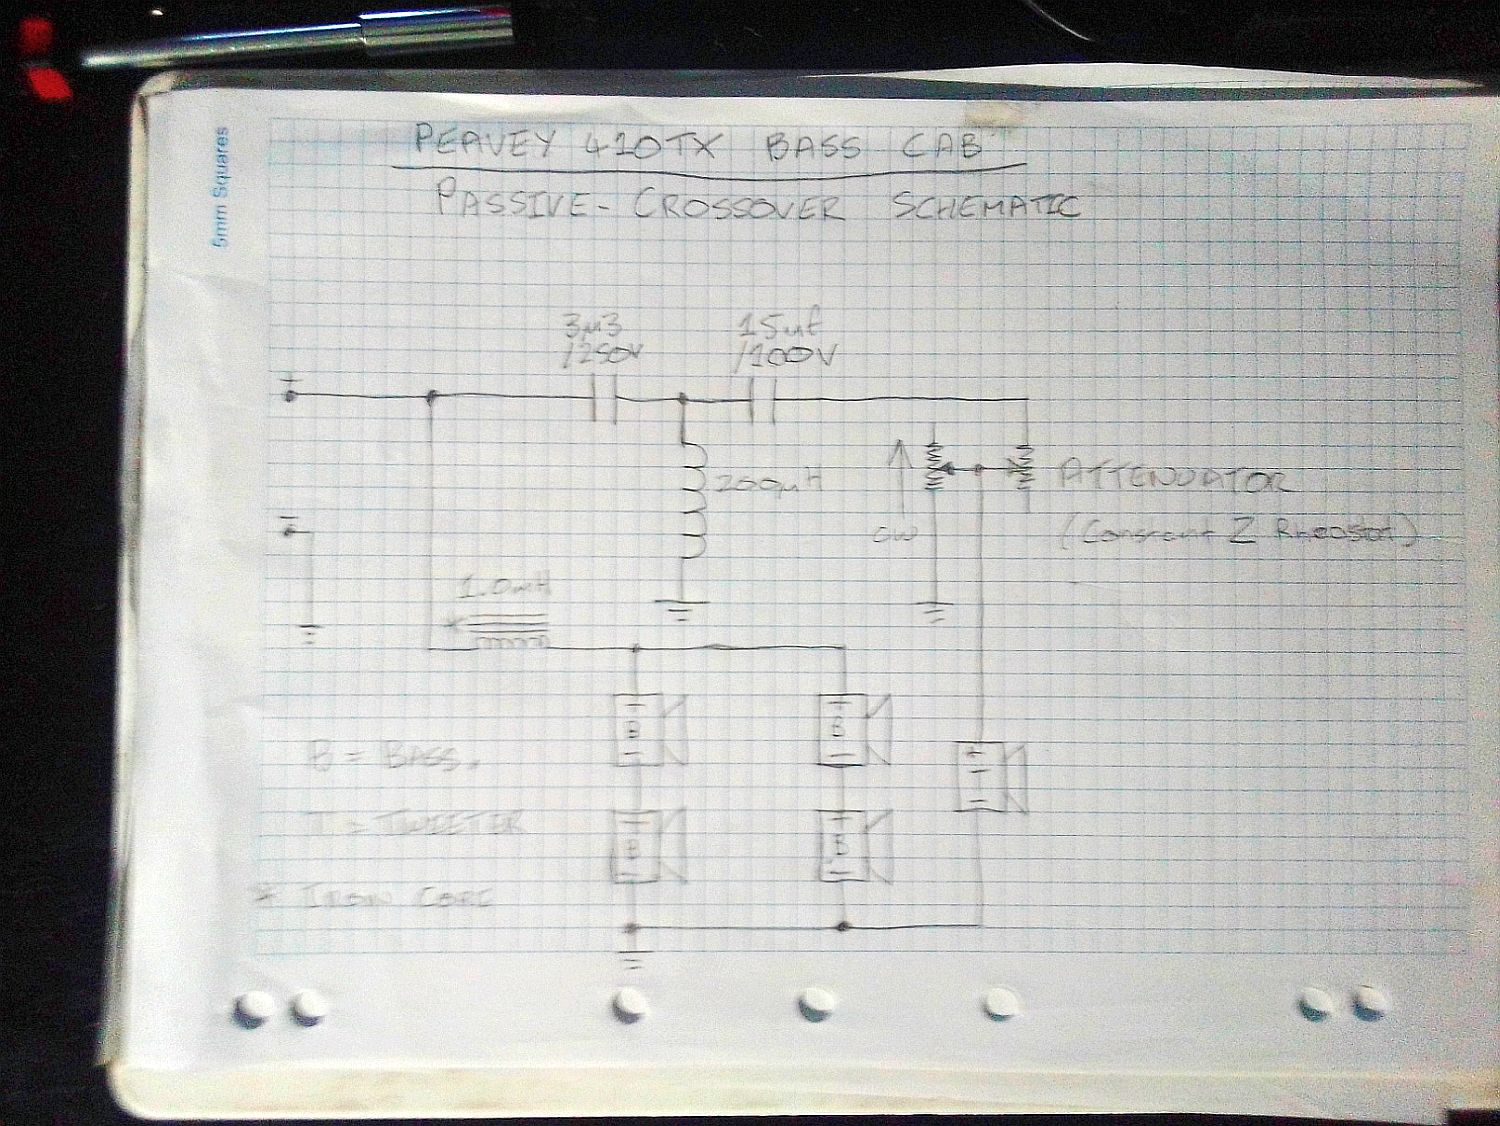 5mm Squares
PEAVEY 410TX BASS CAB
PASSIVE-CROSSOVER SCHEMATIC
3µ3
/250V
15µf
/100V
200µH
ATTENUATOR
CW
(Constant Z Rheostat)
1.0mH
*
+
B
-
+
B
-
+
T
-
B = BASS.
+
B
-
+
B
-
T = TWEETER
* IRON CORE